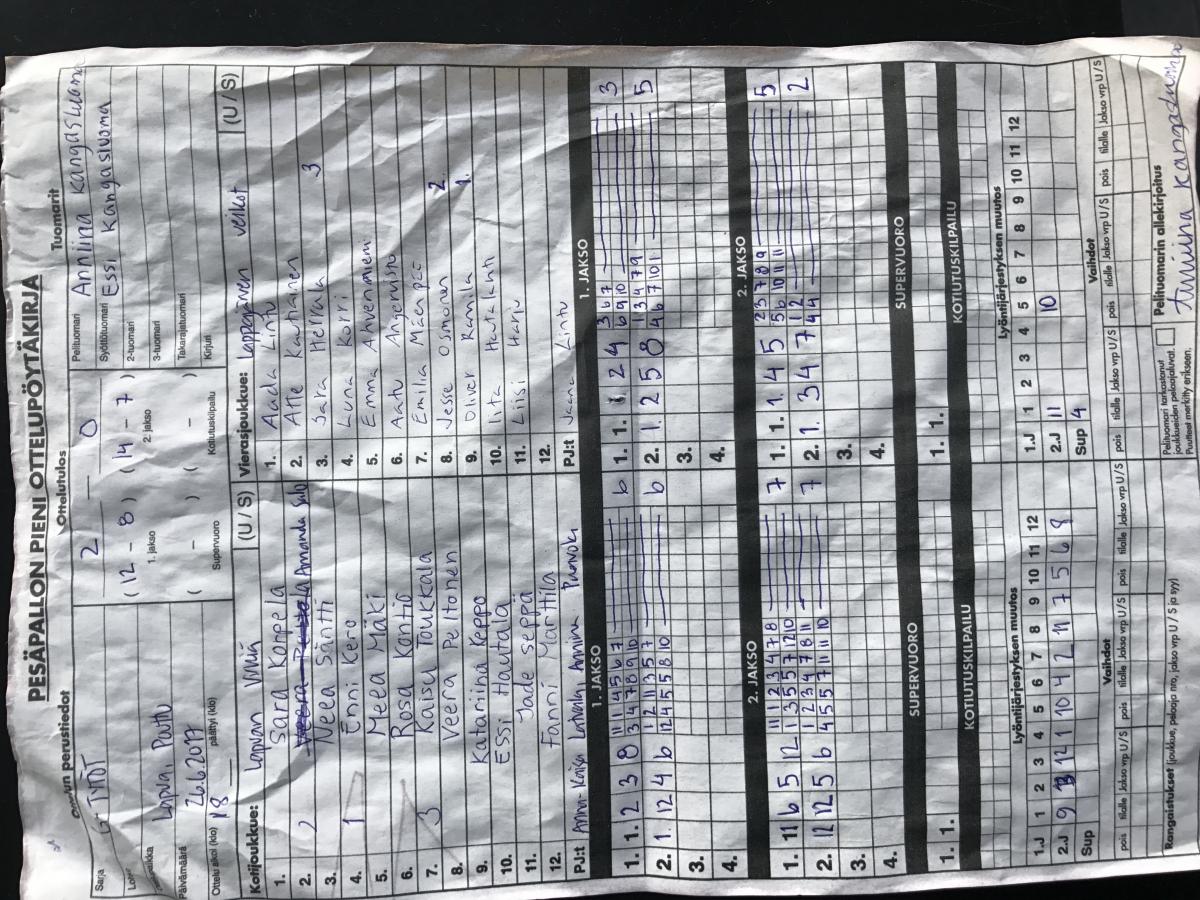 PESÄPALLON PIENI OTTELUPÖYTÄKIRJA
Ottelun perustiedot
Sarja G TYTÖT
Lohko
Paikka Lapua, Pouttu
Päivämäärä 26.6.2017
Ottelu alkoi (klo) 18 päättyi (klo)
Ottelutulos
2 — 0
(12 - 8) (14 - 7)
1. jakso 2. jakso
( - ) ( - )
Supervuoro Kotiutuskilpailu
Tuomarit
Pelituomari Anniina Kangasluoma
Syöttötuomari Essi Kangasluoma
2-tuomari
3-tuomari
Takarajatuomari
Kirjuri
Kotijoukkue: Lapuan Virkiä (U / S)
1. Sara Korpela
2. Amanda Salo
3. Neea Säntti 2
4. Enni Kero 1
5. Meea Mäki
6. Rosa Kontio
7. Kaisu Toukkala 3
8. Veera Peltonen
9. Katariina Keppo
10. Essi Hautala
11. Jade Seppä
12. Fanni Marttila
PJ:t Anna-Kaisa Latvala Annina
Vierasjoukkue: Lappajärven Veikot (U / S)
1. Aada Lintu
2. Atte
3. Sara Herrala 3
4. Luna Korri
5. Emma Ahvenniemi
6. Aatu Angervisto
7. Emilia Mäenpää
8. Jesse Osmonen 2
9. Oliver Ranila 1.
10. Iita Hautakanti
11. Liisi Harju
12.
PJ:t Jaana Lintu
1. JAKSO
1. 1. 2 3 8 11 1 4 5 6 7 6
3 4 7 8 9 10
2. 1. 12 4 6 12 11 3 5 7 6
12 4 5 5 8 10
3.
4.
1. JAKSO
1. 1. 1 2 4 3 6 7 3
6 9 10
2. 1. 2 5 8 1 3 4 7 9 5
4 6 7 10 1
3.
4.
2. JAKSO
1. 11 6 5 12 11 1 2 3 4 7 8 7
1 3 5 5 7 12 10
2. 12 12 5 6 1 2 3 4 7 8 11 7
4 5 5 7 11 11 10
3.
4.
2. JAKSO
1. 1. 1 4 5 2 3 7 8 9 5
5 6 10 11 11
2. 1. 3 4 7 1 2 2
4 4
3.
4.
SUPERVUORO
1. 1.
SUPERVUORO
1. 1.
KOTIUTUSKILPAILU
KOTIUTUSKILPAILU
Lyöntijärjestyksen muutos
1 2 3 4 5 6 7 8 9 10 11 12
1.J
2.J 9 3 12 1 10 4 2 11 7 5 6 8
Sup
Lyöntijärjestyksen muutos
1 2 3 4 5 6 7 8 9 10 11 12
1.J
2.J 11 10
Sup 4
Vaihdot
pois tilalle Jakso vrp U/S pois tilalle Jakso vrp U/S pois tilalle Jakso vrp U/S
Vaihdot
pois tilalle Jakso vrp U/S pois tilalle Jakso vrp U/S pois tilalle Jakso vrp U/S
Rangaistukset (joukkue, pelaaja nro, jakso vrp, U / S ja syy)
Pelituomari tarkastanut
joukkueiden pelaajaluvat.
Puutteet merkitty erikseen.
Pelituomarin allekirjoitus
Anniina Kangasluoma